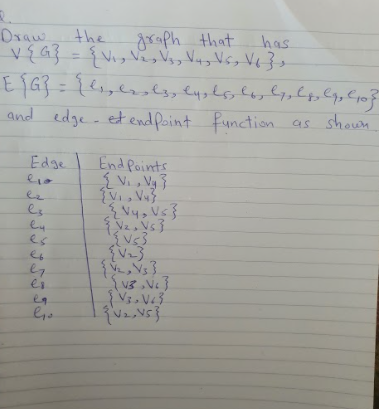 Draw the graph that has
V{G} = {V1, V2, V3, V4, V5, V6},
E{G} = {e1, e2, e3, e4, e5, e6, e7, e8, e9, e10}
and edge - endpoint function as shown
Edge Endpoints
e1 {V1, V4}
e2 {V1, V4}
e3 {V4, V5}
e4 {V2, V5}
e5 {V5}
e6 {V2}
e7 {V2, V3}
e8 {V3, V6}
e9 {V3, V6}
e10 {V2, V5}